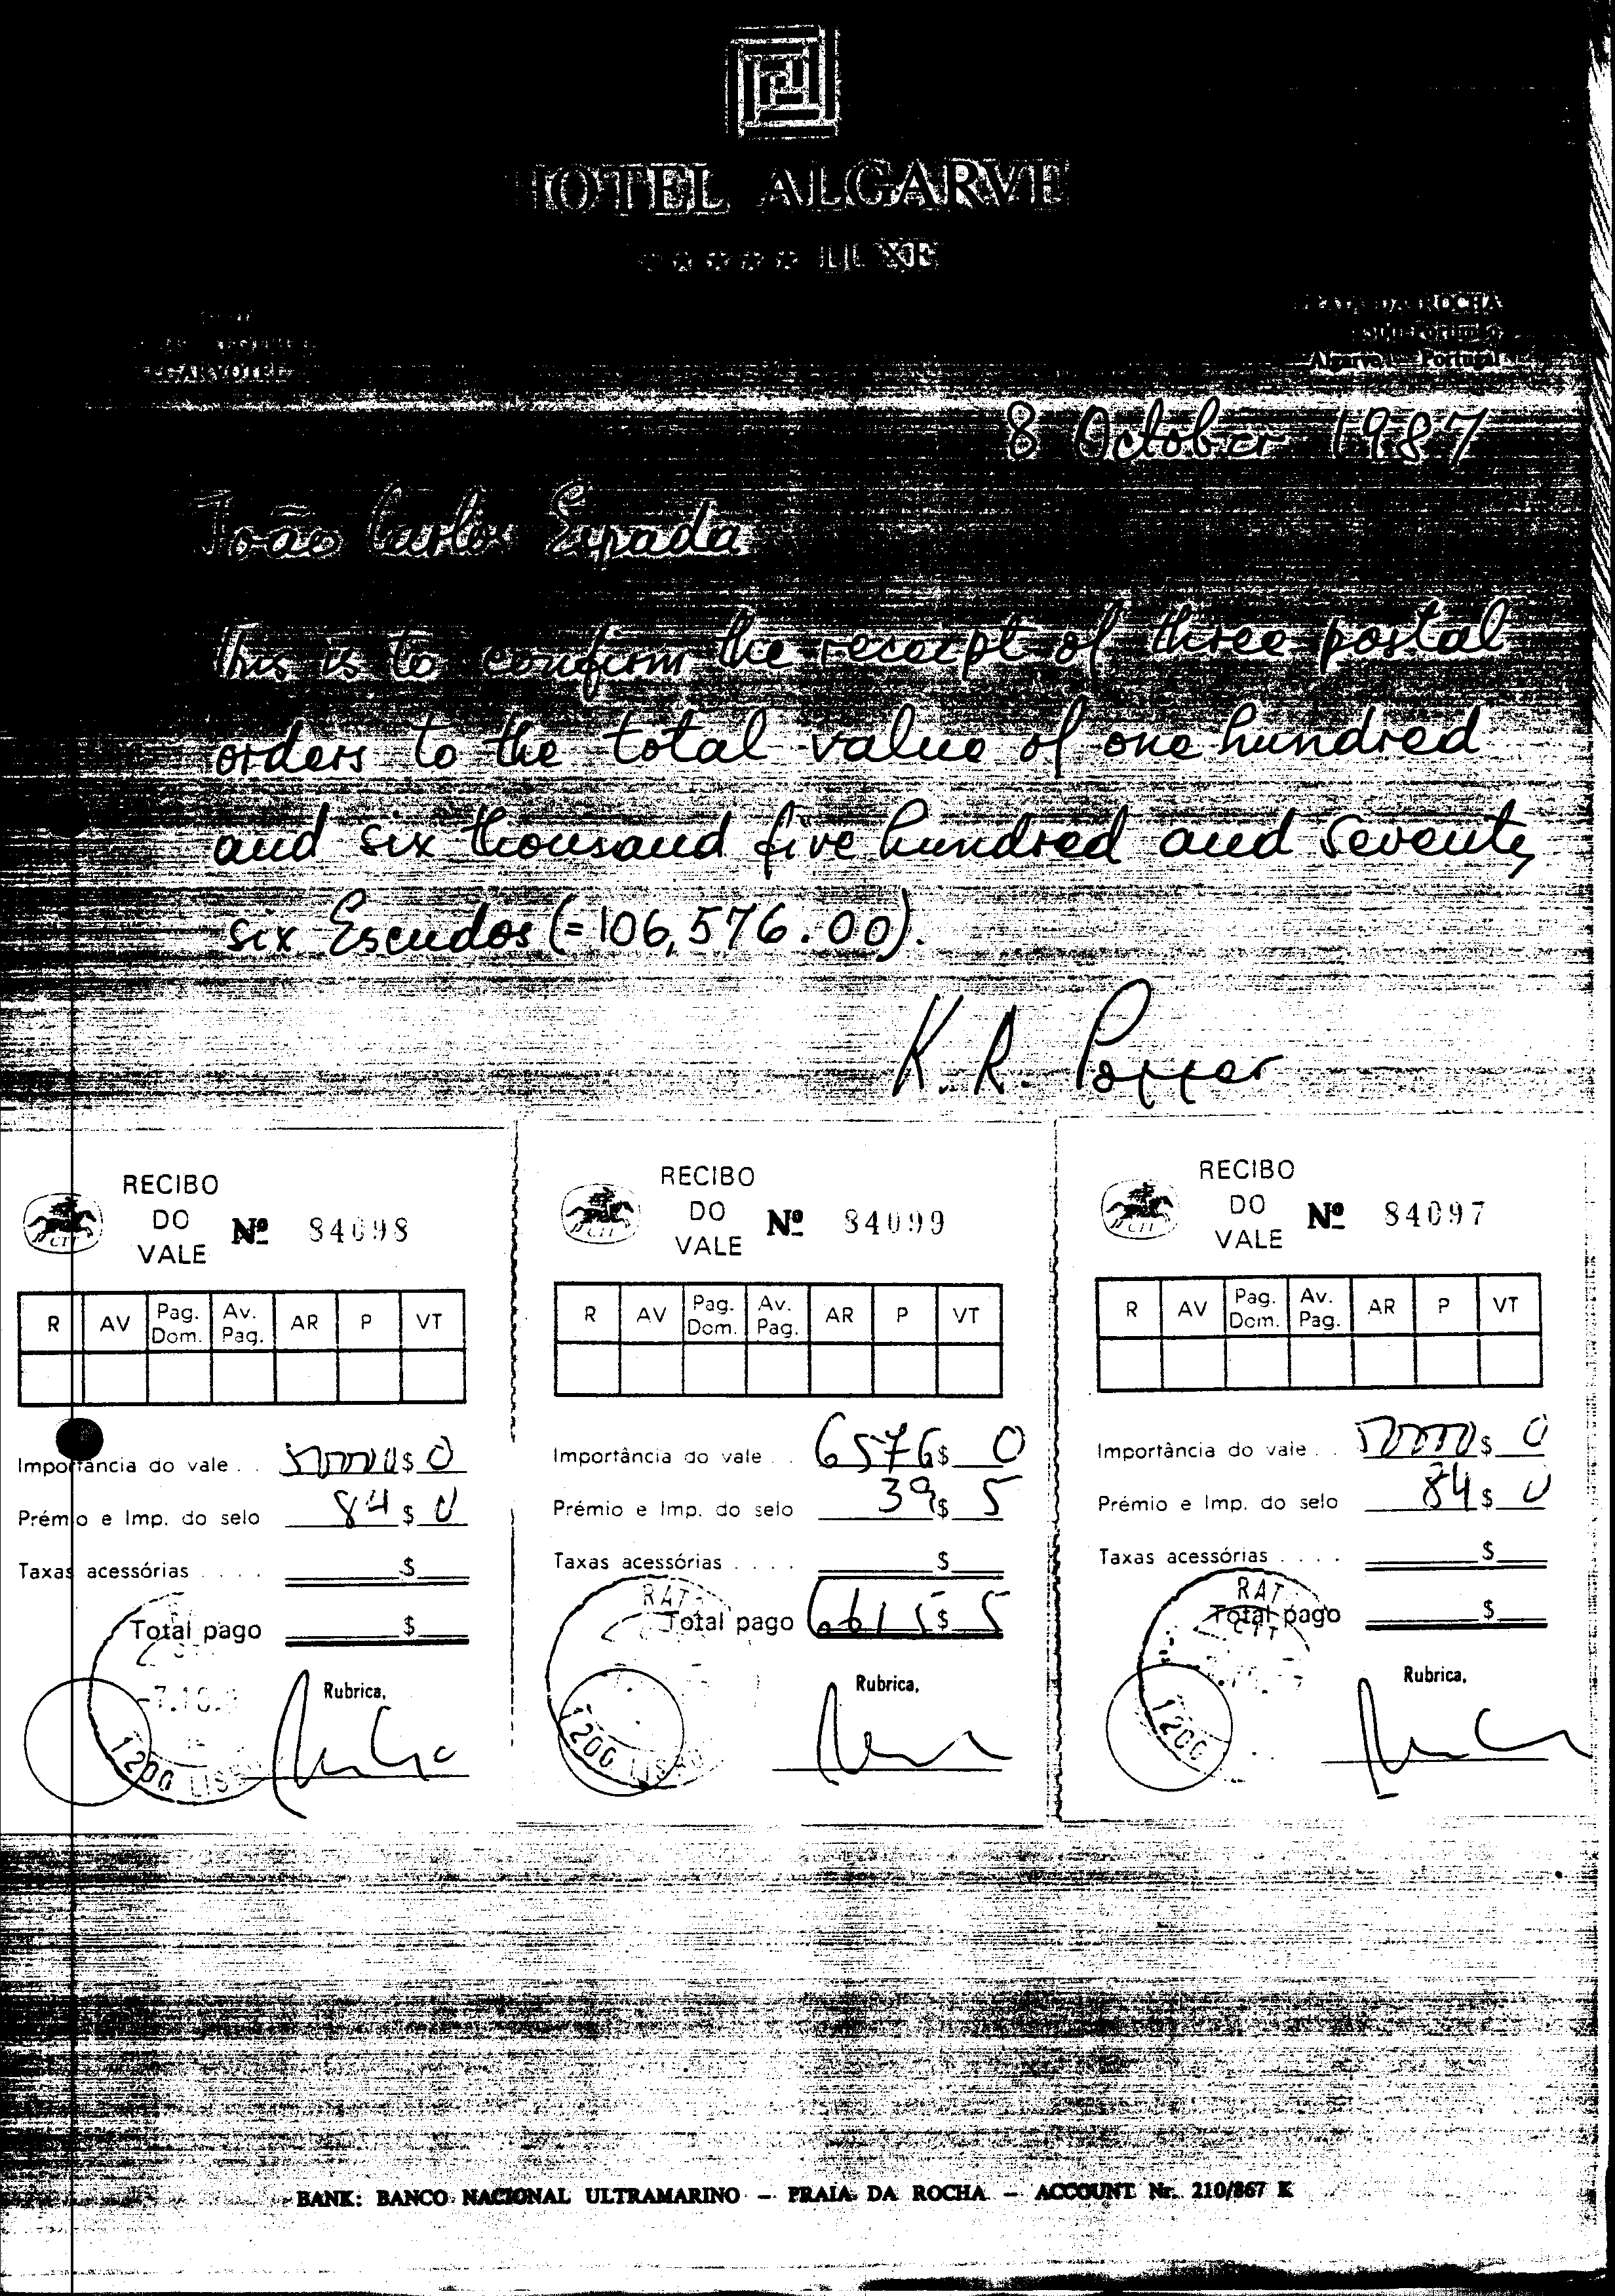 HOTEL ALGARVE
LUXE
PRAIA DA ROCHA
Algarve — Portugal
8 October 1987
João Carlos Espada
This is to confirm the receipt of three postal
orders to the total value of one hundred
and six thousand five hundred and seventy
six Escudos (=106,576.00).
K. R. Popper
RECIBO
DO
VALE
Nº 84098
R AV Pag. Dom. Av. Pag. AR P VT
Importância do vale . . 50000$0
Prémio e Imp. do selo 84$0
Taxas acessórias . . . . $
Total pago $
-7.10.
Rubrica,
1200 LISB
RECIBO
DO
VALE
Nº 84099
R AV Pag. Dom. Av. Pag. AR P VT
Importância do vale . . 6576$0
Prémio e Imp. do selo 39$5
Taxas acessórias . . . . $
RAT
Total pago 6615$5
Rubrica,
1200 LISBO
RECIBO
DO
VALE
Nº 84097
R AV Pag. Dom. Av. Pag. AR P VT
Importância do vale . . 50000$0
Prémio e Imp. do selo 84$0
Taxas acessórias . . . . $
RAT
Total pago $
CTT
Rubrica,
1200
BANK: BANCO NACIONAL ULTRAMARINO – PRAIA DA ROCHA – ACCOUNT Nr. 210/867 K